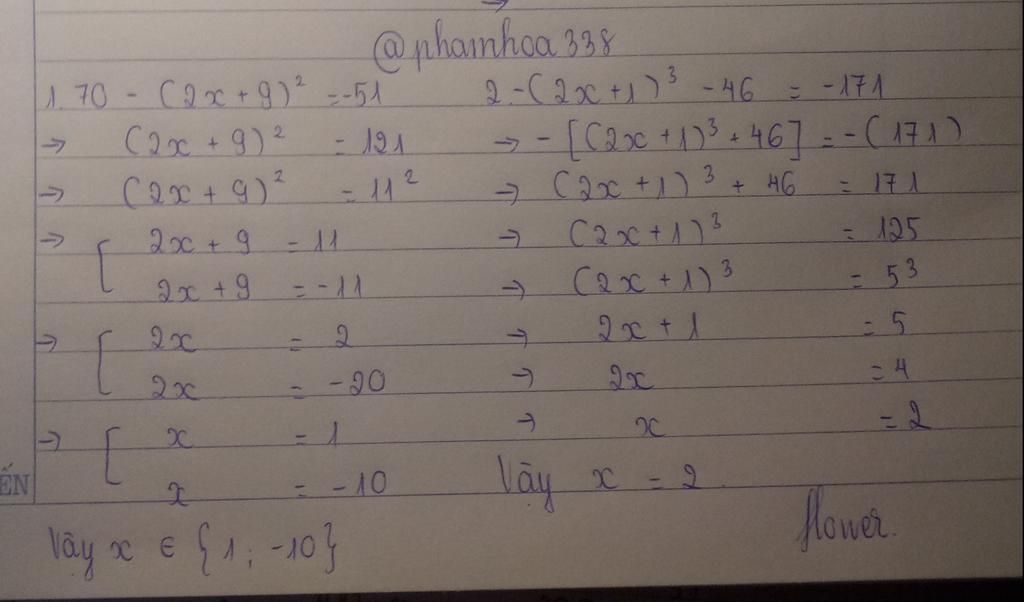 @phamhoa338
1. 70 - (2x + 9)² = -51
→ (2x + 9)² = 121
→ (2x + 9)² = 11²
→ [ 2x + 9 = 11
2x + 9 = -11
→ [ 2x = 2
2x = -20
→ [ x = 1
x = -10
Vậy x ∈ {1; -10}
2. -(2x + 1)³ - 46 = -171
→ -[(2x + 1)³ + 46] = -(171)
→ (2x + 1)³ + 46 = 171
→ (2x + 1)³ = 125
→ (2x + 1)³ = 5³
→ 2x + 1 = 5
→ 2x = 4
→ x = 2
Vậy x = 2.
flower.
ẾN